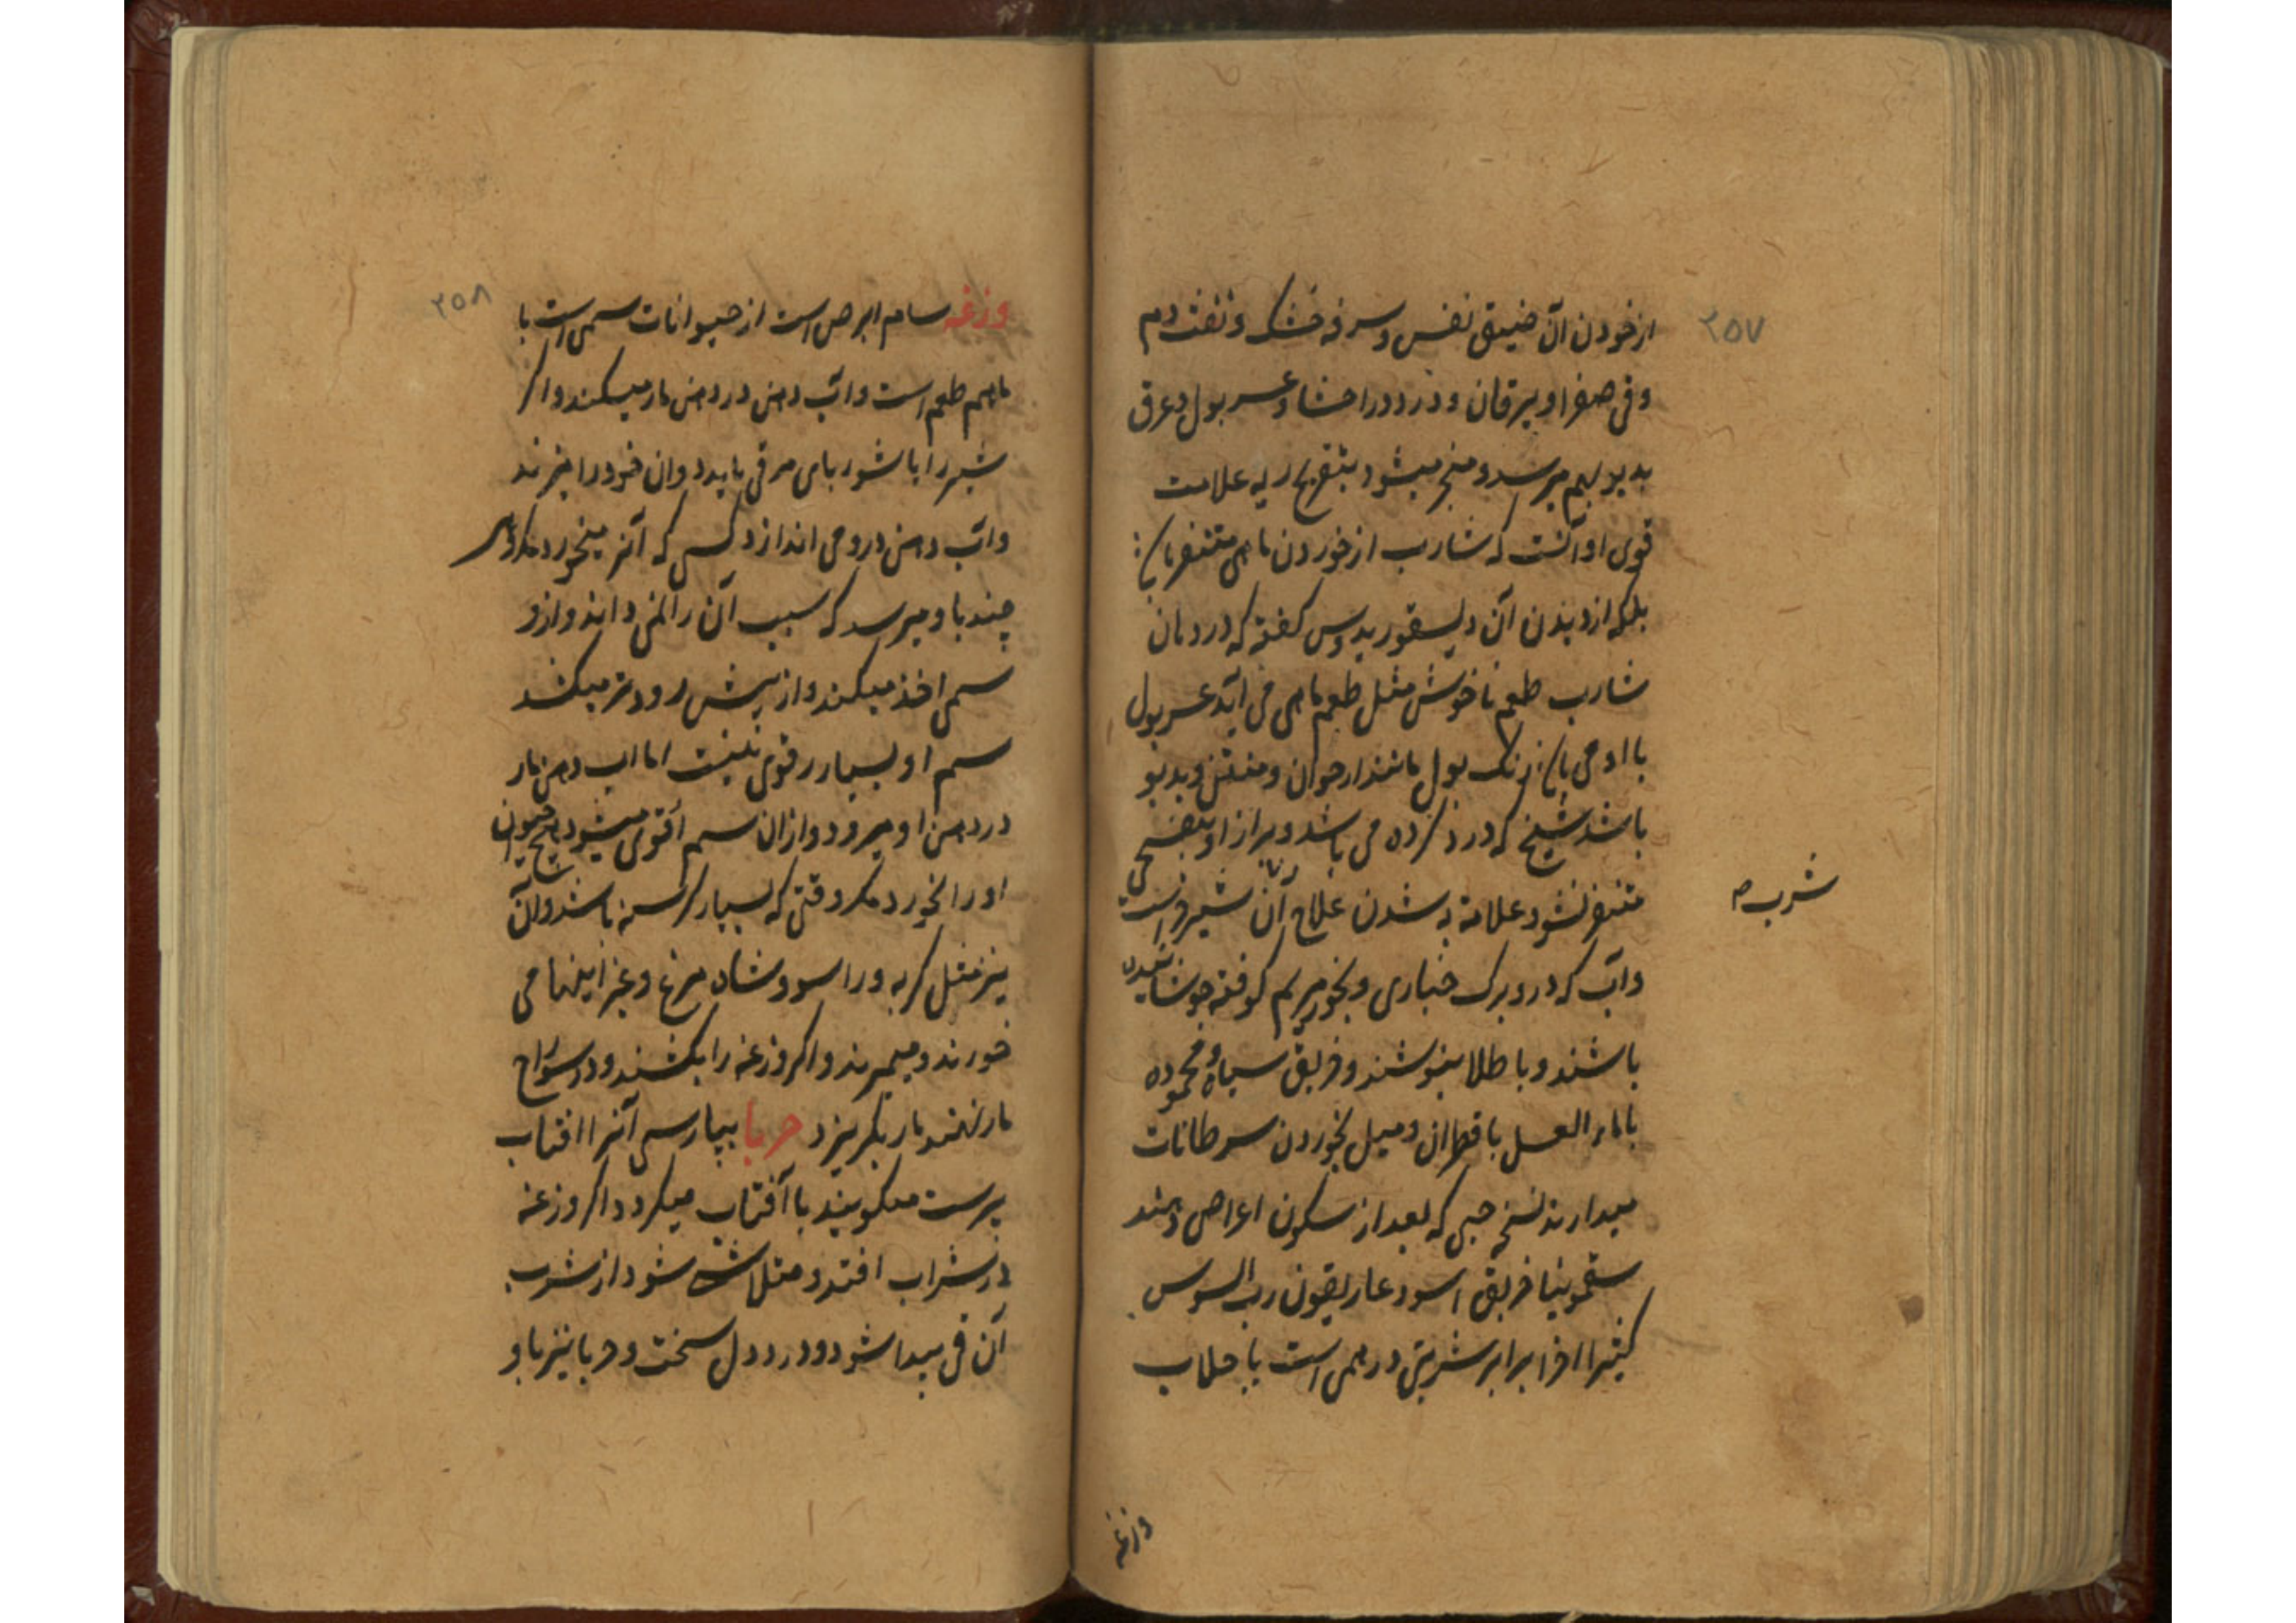 ۲۵۷
از خودن آن ضیق نفس و سرفه خشک و نفث دم
و قی صفرا و یرقان و درد در احشا و عسر بول و عرق
بدبو بهم میرسد و منجر میشود بتقرح ریه علامت
قوی او آنست که شارب از خوردن ماهی متنفر باشد
بلکه از دیدن آن دیسقوریدوس کفته که در دهان
شارب طعم ناخوش مثل طعم ماهی می آید عسر بول
با او می باشد رنک بول مانند ارجوان و منتن و بدبو
باشد شیخ که درد کرده می باشد و براز او بنفسجی
متنفر نشود علامة به شدن علاج آن شیر است
شرب
وآب که درو برک خبازی و بخور مریم کوفته جوشانیده
باشند و با طلا بنوشند و خربق سیاه و محموده
با ماء العسل با قطران و میل بخوردن سرطانات
میدارند نسخه حبی که بعد از سکون اعراض دهند
سقمونیا خربق اسود غاریقون رب السوس
کتیرا اجزا برابر شربتی درهمی است با جلاب
وزغه
۲۵۸
وزغه سام ابرص است از حیوانات سمی است با
ماهم طعم است وآب دهن در دهن مار میکند واکر
شیر را با شوربای مرقی یابد دران خود را میزند
وآب دهن درو می اندازد کسی که آنر میخورد مکروهی
چند باو میرسد که سبب آن را نمی دانند و ازو
سم اخذ میکنند و از بیش زودتر میکشد
سم او بسیار رقوی نیست اما اب دهن مار
در دهن او میرود و ازان سم اقوی میشود هیچ حیوان
او را نخورد مکر وقتی که بسیار کرسنه باشد وآن
نیز مثل کربه و راسو و شاه مرغ و غیر اینها می
خورند و میمیرند واکر وزغه را بکشند و در سوراخ
مار نهند مار بکریزد حربا بپارسی آنرا افتاب
پرست میکویند با آفتاب میکردد اکر وزغه
در شراب افتد و متلاشی شود از شرب
آن قی پیدا شود و درد دل سخت و حربا نیز باو